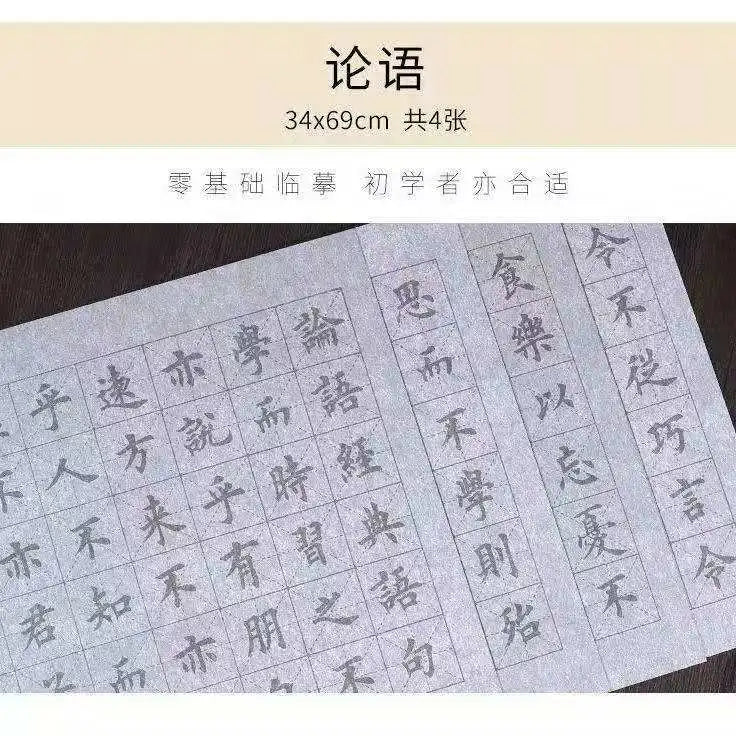 论语
34x69cm 共4张
零基础临摹 初学者亦合适
令不從巧言令
食樂以忘憂不
思而不學則殆
論語經典語句
學而時習之不
亦說乎有朋
遠方来不亦
乎人不知而
不亦君